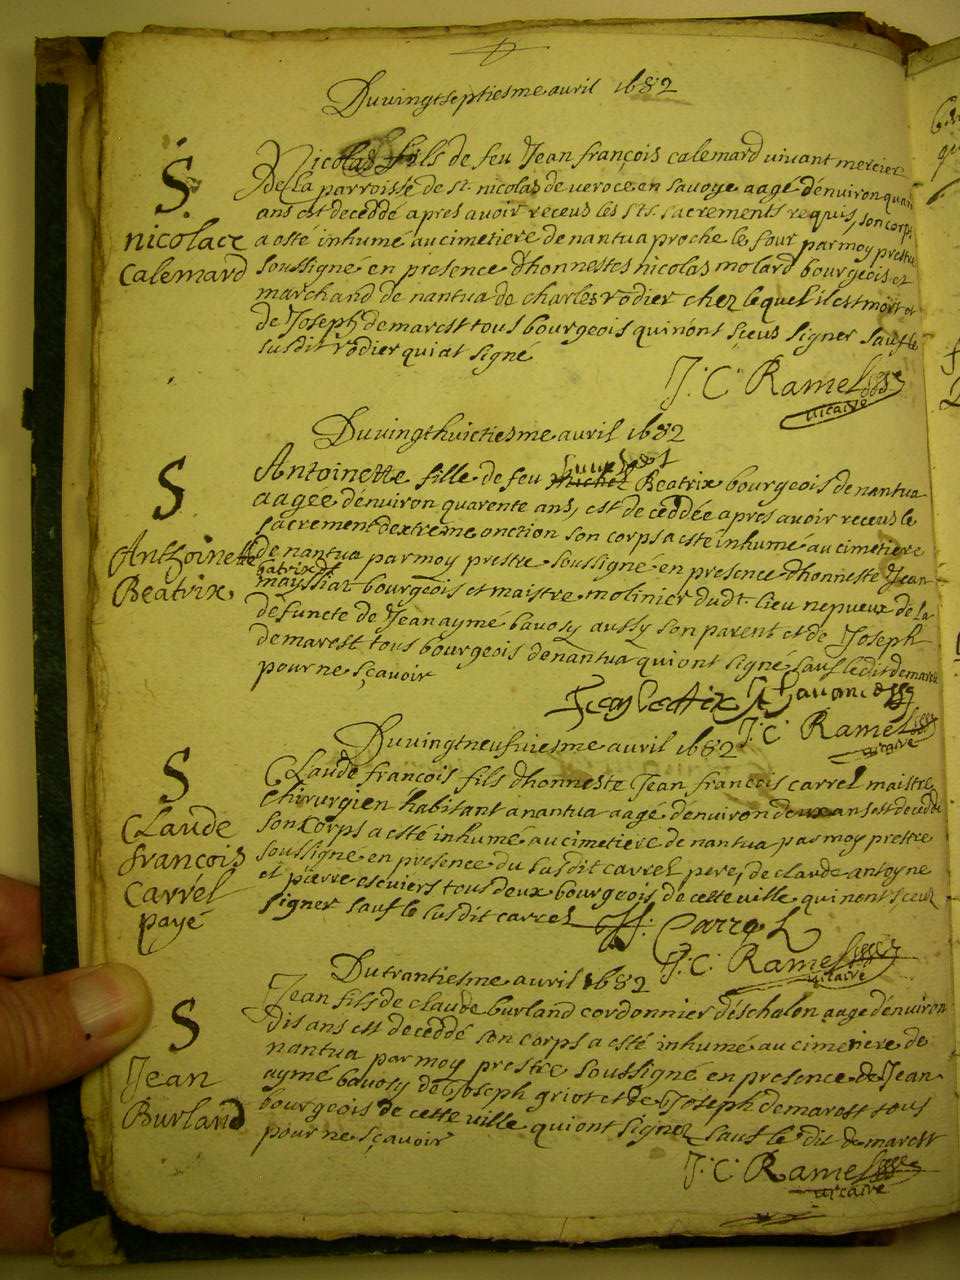 Du vingt septiesme avril 1682
S.
nicolace
Calemard
Nicolas fils de feu Jean françois calemard vivant mercier
de La parroisse de st. nicolas de veroce en savoye aagé d'environ quar
ans est deceddé apres avoir receus les sts. sacrements requis, son corps
a esté inhumé au cimetiere de nantua proche le four par moy prestre
soussigné en presence d'honnestes nicolas molard bourgeois et
marchand de nantua de charles rodier chez lequel il est mort et
de Joseph demarest tous bourgeois qui n'ont sceus signer sauf le
susdit rodier qui at signé
J. C. Ramel
vicaire
Du vingt huictiesme avril 1682
S
Anthoinette
Beatrix
Antoinette fille de feu michel Beatrix bourgeois de nantua
aagee d'environ quarente ans, est deceddée apres avoir receus le
sacrement d'extreme onction son corps a esté inhumé au cimetiere
de nantua par moy prestre soussigné en presence d'honneste Jean
bourgeois et maistre molinier dudt. lieu nepveux de La
defuncte de Jean aymé bavosy aussy son parent et de Joseph
demarest tous bourgeois de nantua qui ont signé sauf ledit demarest
pour ne sçavoir
Jean beatrix
J. C. Ramel
vicaire
Du vingt neufviesme avril 1682
S
Claude
françois
Carrel
payé
CLaude françois fils d'honneste Jean françois carrel maistre
chirurgien habitant a nantua aagé d'environ deux ans est deceddé
son corps a esté inhumé au cimetiere de nantua par moy prestre
soussigné en presence du susdit carrel pere, de claude antoyne
et pierre escuiers tous deux bourgeois de cette ville qui n'ont sceus
signer sauf le susdit carrel
Carrel
J. C. Ramel
vicaire
Du trantiesme avril 1682
S
Jean
Burland
Jean fils de claude burland cordonnier d'eschalon aagé d'environ
dis ans est deceddé son corps a esté inhumé au cimetiere de
nantua par moy prestre soussigné en presence de Jean
aymé bavosy de Joseph griot et de Joseph demarest tous
bourgeois de cette ville qui ont signez sauf le dit demarest
pour ne sçavoir
J. C. Ramel
vicaire